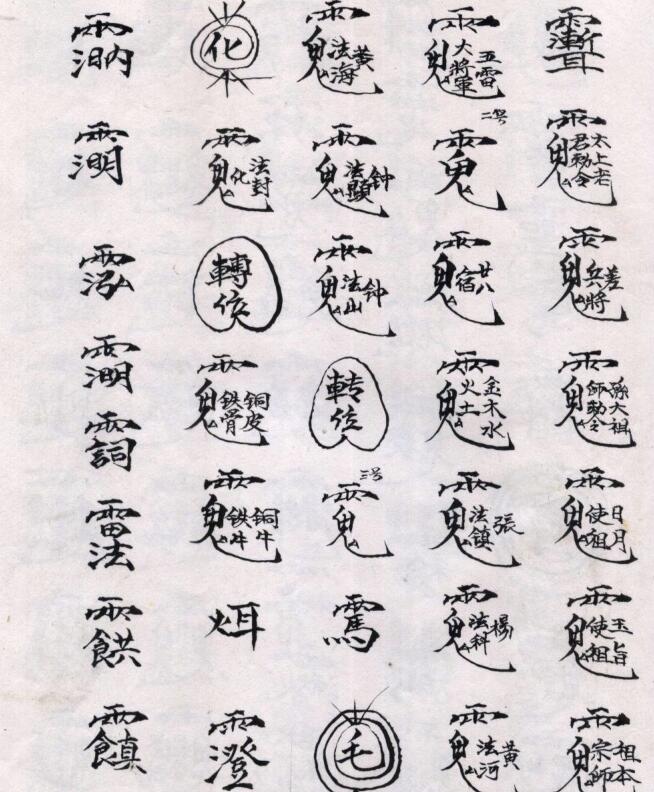 雨漸耳
雨鬼太上老君勅令
雨鬼差兵將
雨鬼孫大祖師勅令
雨鬼日月使祖
雨鬼玉旨使祖
雨鬼祖本宗師
雨鬼五雷大將軍
二号雨鬼
雨鬼廿八宿
雨鬼金木水火土
雨鬼張法鎮
雨鬼楊法科
雨鬼黃法河
雨鬼黃法海
雨鬼钟法顯
雨鬼钟法山
转位
三号雨鬼
雨馬
毛
化
雨鬼法封化
轉位
雨鬼銅皮鉄骨
雨鬼銅牛鉄牛
雨澄
雨泓
雨詞
雨法